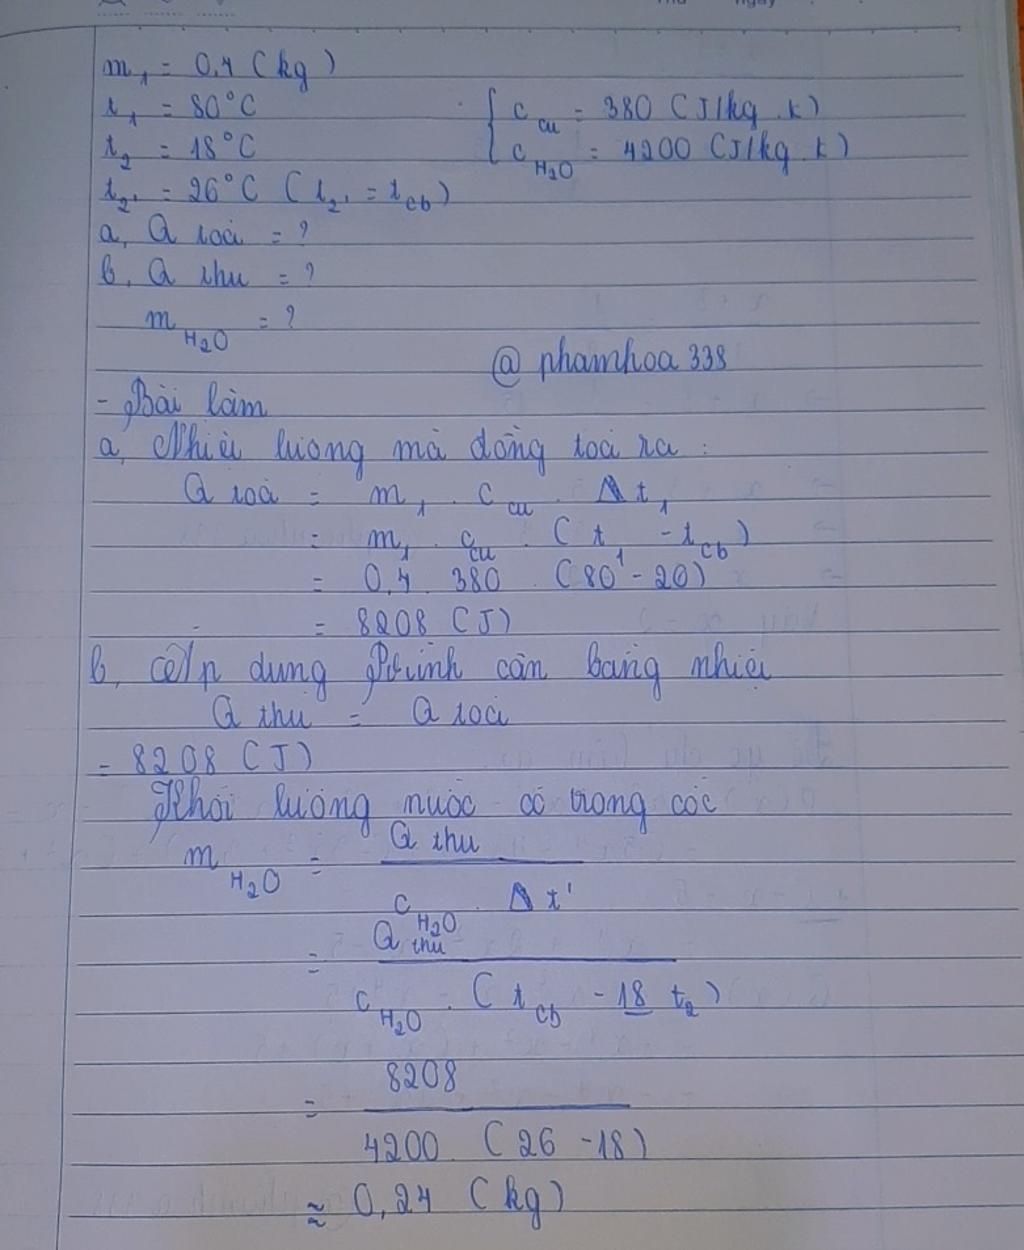 m₁ = 0,4 (kg)
t₁ = 80°C
t₂ = 18°C
t₂' = 26°C (t₂' = t cb)
{ c Cu = 380 (J/kg.k)
c H₂O = 4200 (J/kg.k)
a, Q toả = ?
b, Q thu = ?
m H₂O = ?
@ phamhoa338
- Bài làm
a, Nhiệt lượng mà đồng toả ra :
Q toả = m₁ . c cu . Δt₁
= m₁ . c cu . (t₁ - t cb)
= 0,4 . 380 . (80 - 20)
= 8208 (J)
b, Áp dụng Ptrình cân bằng nhiệt
Q thu = Q toả
= 8208 (J)
Khối lượng nước có trong cốc
m H₂O = Q thu / c H₂O . Δt'
= Q thu / c H₂O . (t cb - 18 t₂)
= 8208 / 4200 . (26 - 18)
≈ 0,24 (kg)